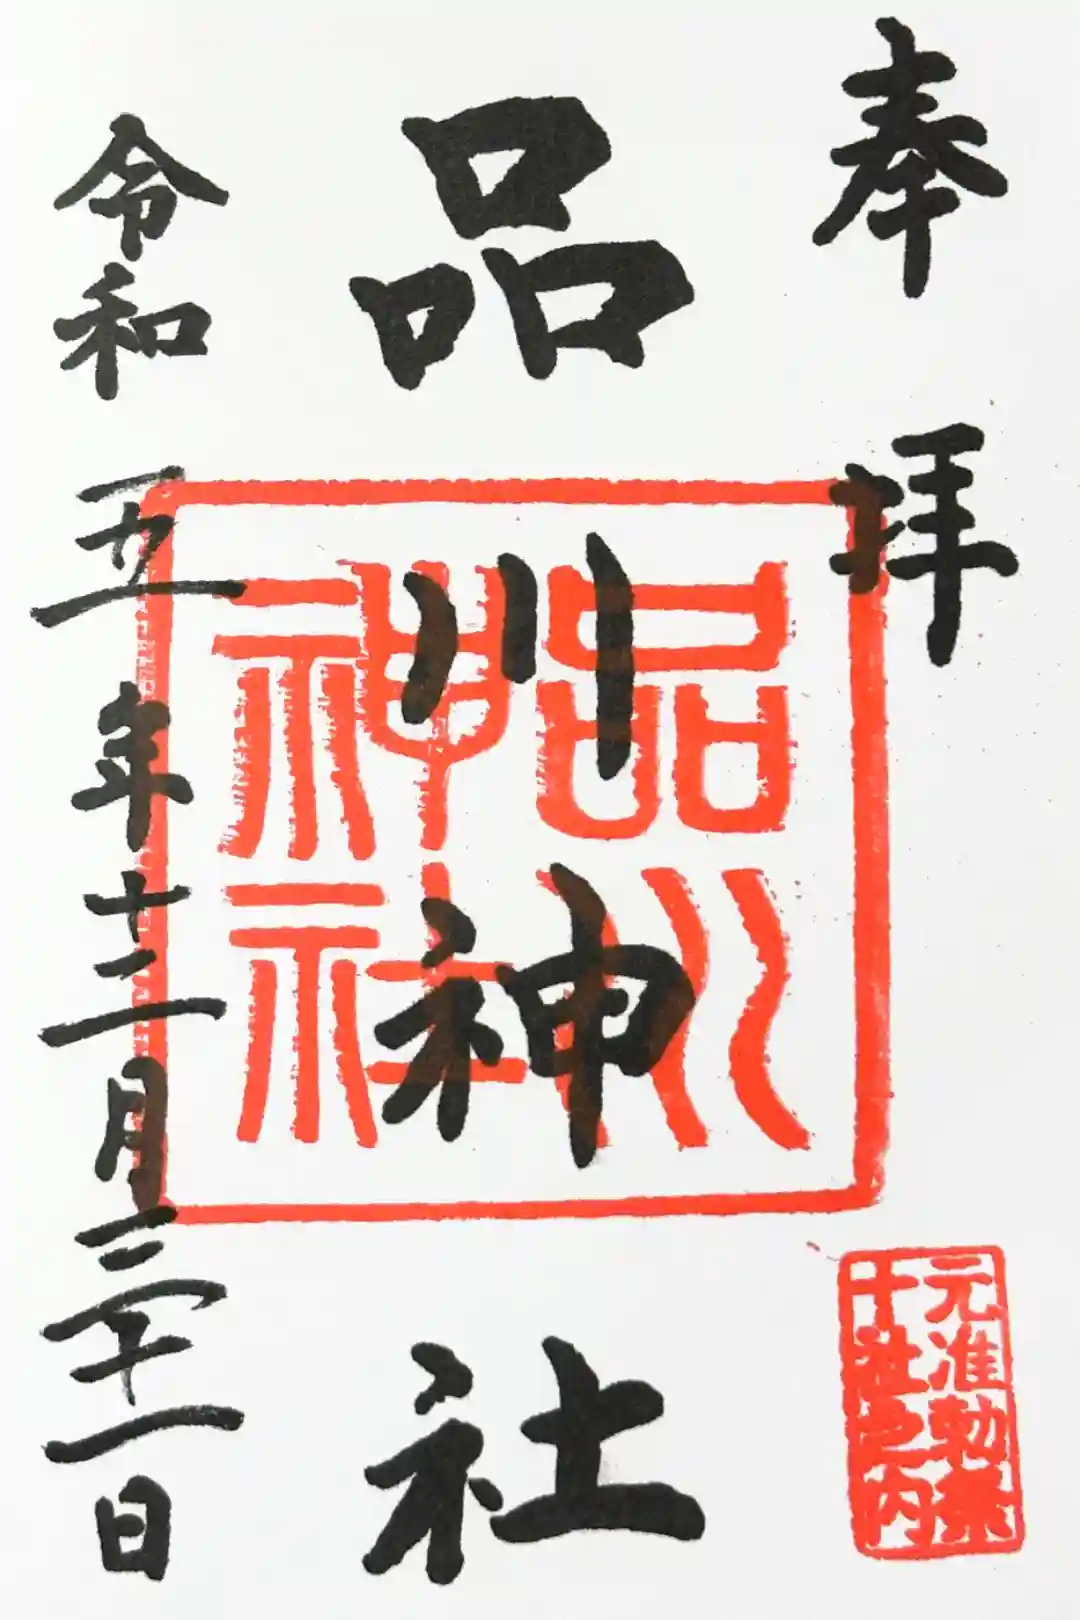 奉拝
品川神社
令和五年十二月三十一日
品川
神社
元准勅祭
十社之内